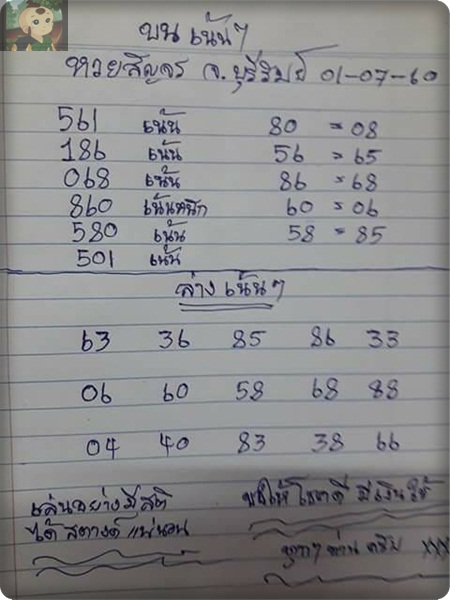 บน เน้นๆ
หวยสัญจร จ.บุรีรัมย์ 01-07-60
561 เน้น 80 = 08
186 เน้น 56 = 65
068 เน้น 86 = 68
860 เน้นหนัก 60 = 06
580 เน้น 58 = 85
501 เน้น
ล่าง เน้นๆ
63 36 85 86 33
06 60 58 68 88
04 40 83 38 66
เล่นอย่างมีสติ
ได้สตางค์แน่นอน
ขอให้โชคดี มีเงินใช้
ทุกๆ ท่าน ครับ xxx